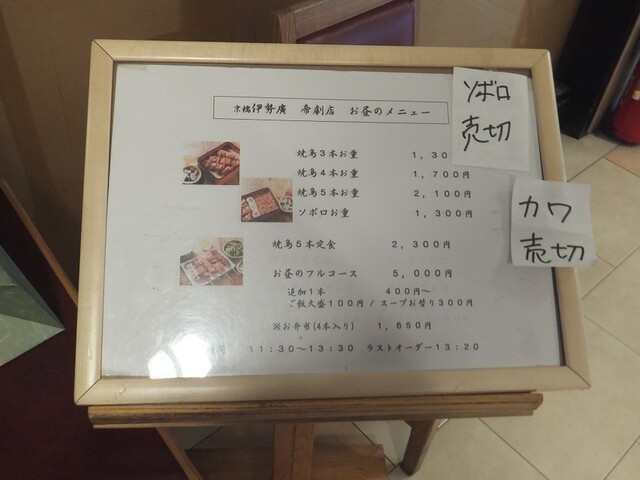 京橋伊勢廣 帝劇店 お昼のメニュー
焼鳥3本お重 1,30
焼鳥4本お重 1,700円
焼鳥5本お重 2,100円
ソボロお重 1,300円
焼鳥5本定食 2,300円
お昼のフルコース 5,000円
追加1本 400円~
ご飯大盛100円/スープお替り300円
※お弁当(4本入り) 1,650円
間 11:30~13:30 ラストオーダー13:20
ソボロ
売切
カワ
売切